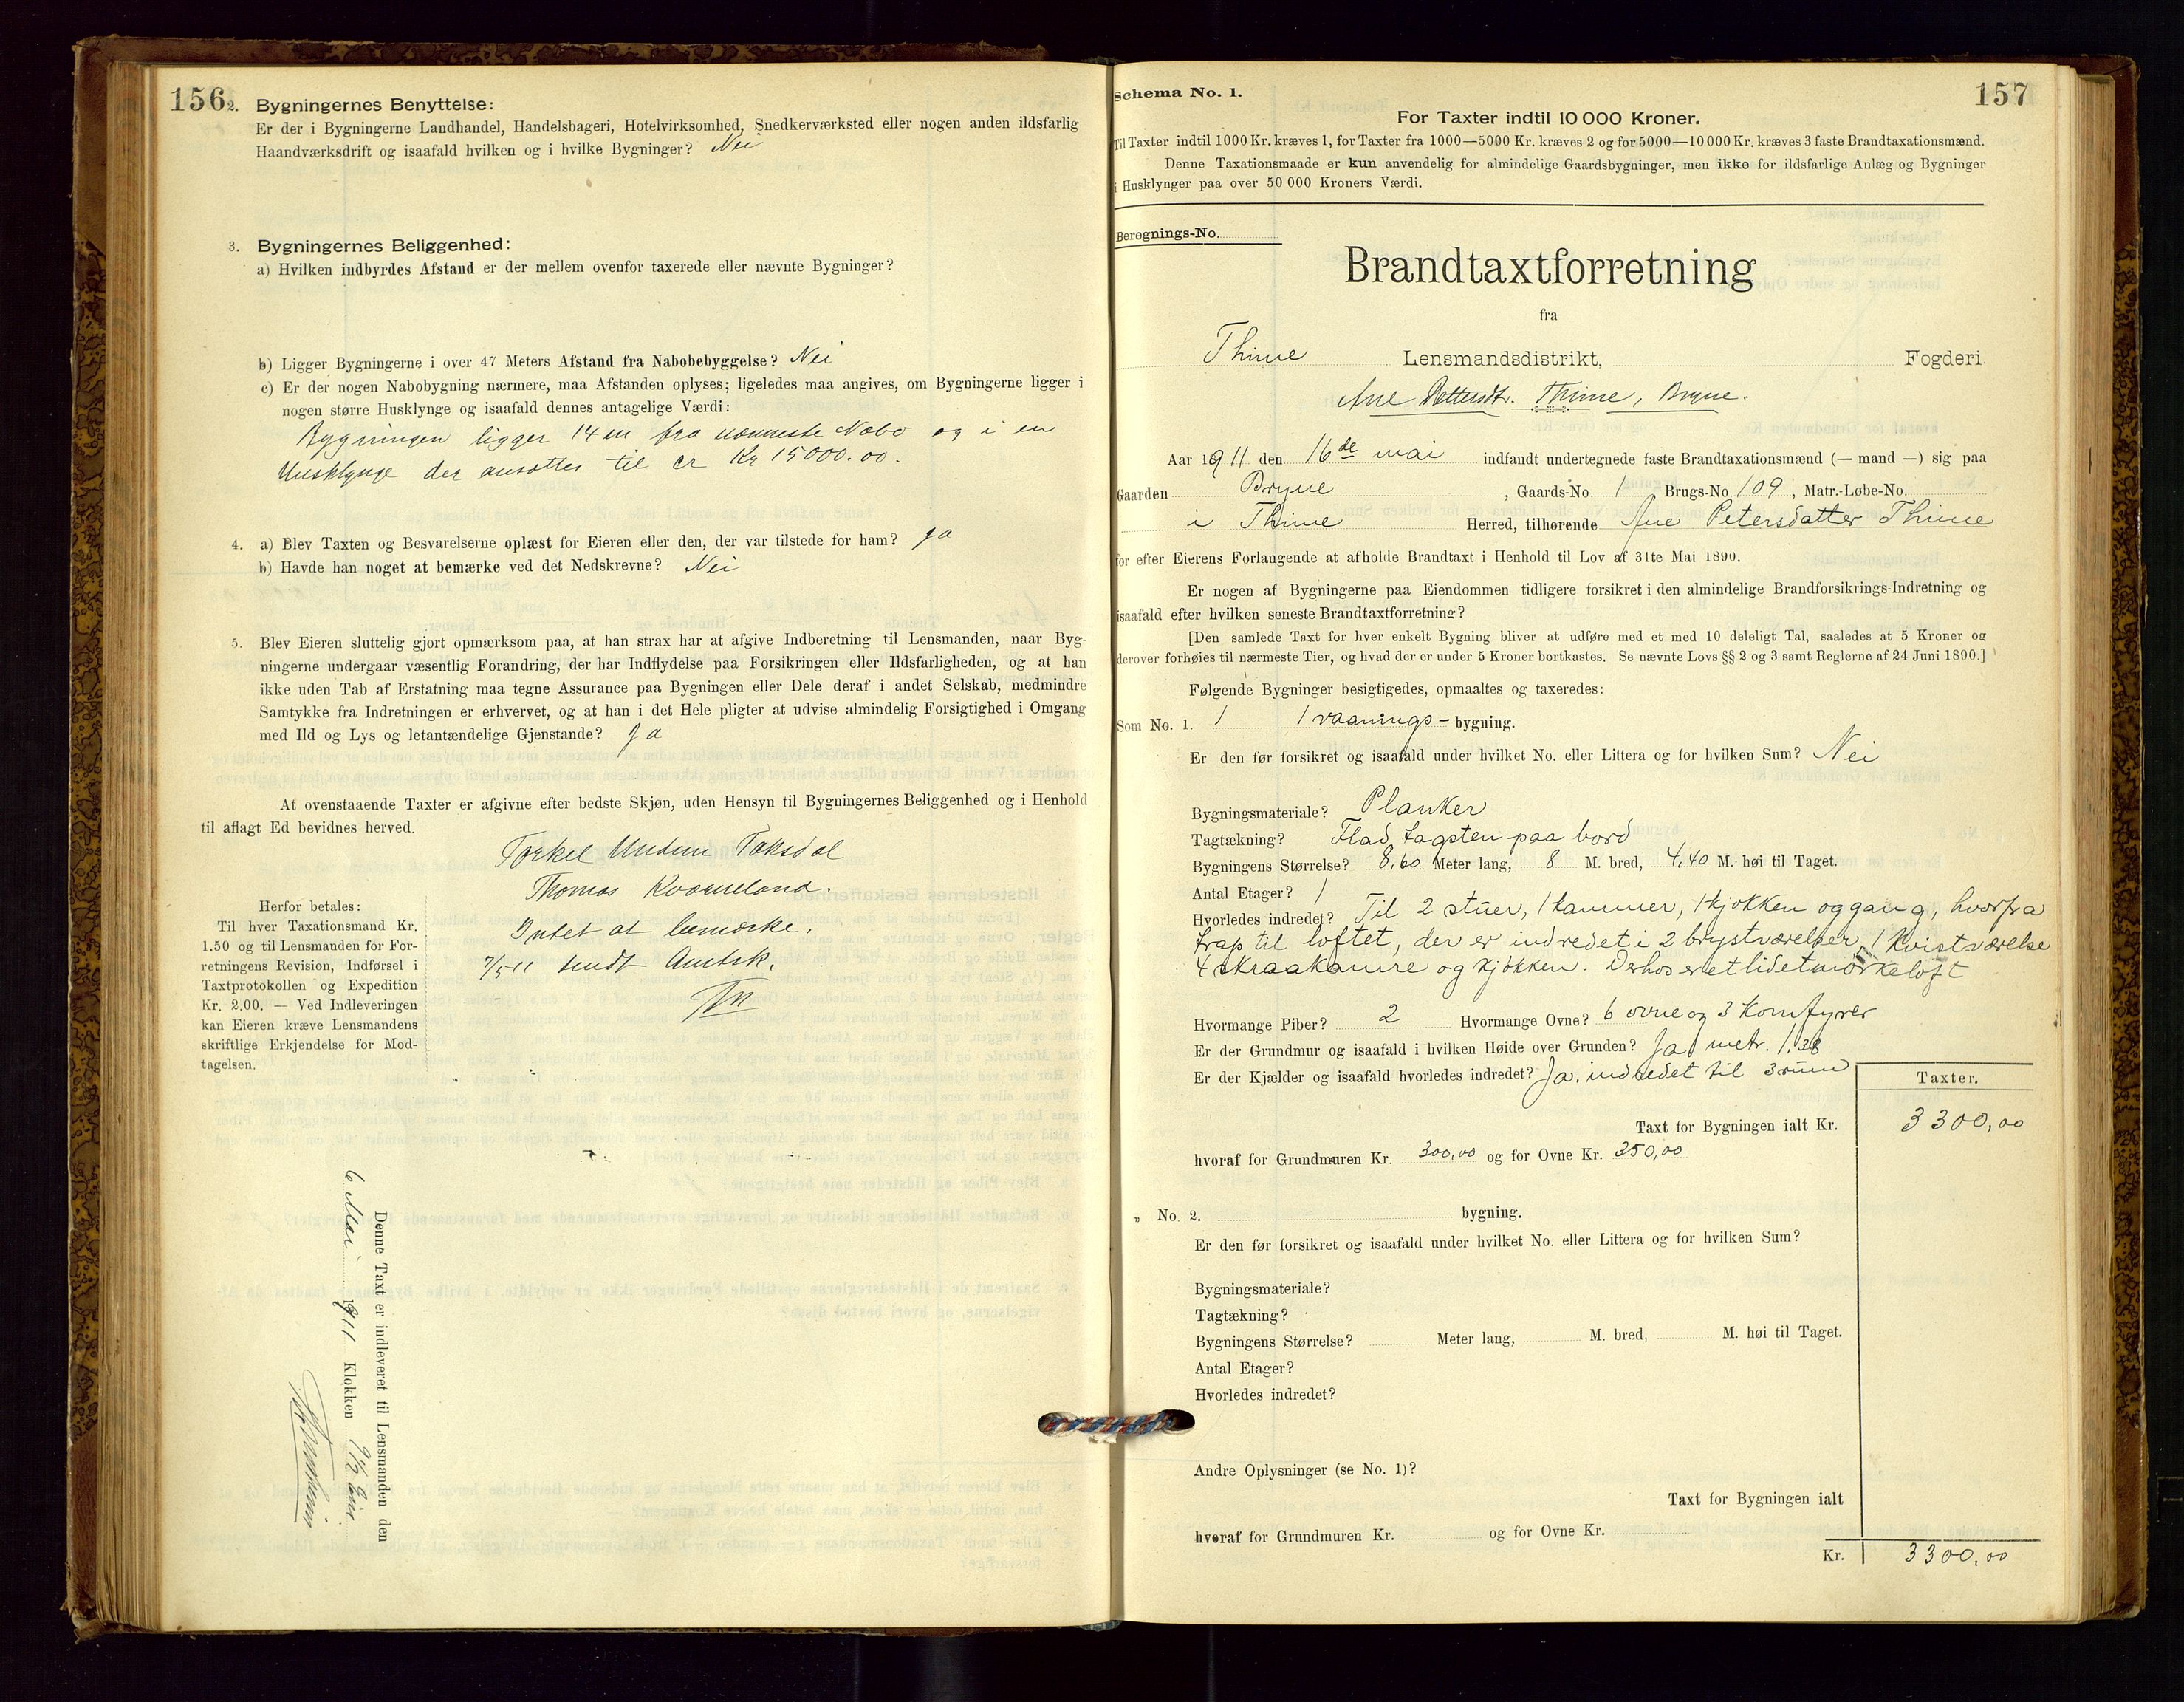 156
2. Bygningernes Benyttelse:
Er der i Bygningerne Landhandel, Handelsbageri, Hotelvirksomhed, Snedkerværksted eller nogen anden ildsfarlig
Haandværksdrift og isaafald hvilken og i hvilke Bygninger? Nei
3. Bygningernes Beliggenhed:
a) Hvilken indbyrdes Afstand er der mellem ovenfor taxerede eller nævnte Bygninger?
b) Ligger Bygningerne i over 47 Meters Afstand fra Nabobebyggelse? Nei
c) Er der nogen Nabobygning nærmere, maa Afstanden oplyses; ligeledes maa angives, om Bygningerne ligger i
nogen større Husklynge og isaafald dennes antagelige Værdi:
Bygningen ligger 14 m fra nærmeste Nabo og i en
Husklynge der ansættes til cr Kr 15000.00.
4. a) Blev Taxten og Besvarelserne oplæst for Eieren eller den, der var tilstede for ham? ja
b) Havde han noget at bemærke ved det Nedskrevne? Nei
5. Blev Eieren sluttelig gjort opmærksom paa, at han strax har at afgive Indberetning til Lensmanden, naar Byg-
ningerne undergaar væsentlig Forandring, der har Indflydelse paa Forsikringen eller Ildsfarligheden, og at han
ikke uden Tab af Erstatning maa tegne Assurance paa Bygningen eller Dele deraf i andet Selskab, medmindre
Samtykke fra Indretningen er erhvervet, og at han i det Hele pligter at udvise almindelig Forsigtighed i Omgang
med Ild og Lys og letantændelige Gjenstande? Ja
At ovenstaaende Taxter er afgivne efter bedste Skjøn, uden Hensyn til Bygningernes Beliggenhed og i Henhold
til aflagt Ed bevidnes herved.
Torkel Undem Taksdal
Thomas Kværneland.
Intet at bemærke.
7/5 11 sendt Amtsk.
Herfor betales:
Til hver Taxationsmand Kr.
1.50 og til Lensmanden for For-
retningens Revision, Indførsel i
Taxtprotokollen og Expedition
Kr. 2.00. — Ved Indleveringen
kan Eieren kræve Lensmandens
skriftlige Erkjendelse for Mod-
tagelsen.
Denne Taxt er indleveret til Lensmanden den
6 Mai 1911 Klokken 9 1/2
157
Schema No. 1.
For Taxter indtil 10 000 Kroner.
Til Taxter indtil 1000 Kr. kræves 1, for Taxter fra 1000—5000 Kr. kræves 2 og for 5000—10000 Kr. kræves 3 faste Brandtaxationsmænd.
Denne Taxationsmaade er kun anvendelig for almindelige Gaardsbygninger, men ikke for ildsfarlige Anlæg og Bygninger
i Husklynger paa over 50 000 Kroners Værdi.
Beregnings-No.
Brandtaxtforretning
fra
Thime Lensmandsdistrikt, Fogderi
Ane Pettersdtr. Thime, Bryne.
Aar 1911 den 16de mai indfandt undertegnede faste Brandtaxationsmænd (— mand —) sig paa
Gaarden Bryne, Gaards-No. 1 Brugs-No. 109, Matr.-Løbe-No.
i Thime Herred, tilhørende Ane Petersdatter Thime
for efter Eierens Forlangende at afholde Brandtaxt i Henhold til Lov af 31te Mai 1890.
Er nogen af Bygningerne paa Eiendommen tidligere forsikret i den almindelige Brandforsikrings-Indretning og
isaafald efter hvilken seneste Brandtaxtforretning?
[Den samlede Taxt for hver enkelt Bygning bliver at udføre med et med 10 deleligt Tal, saaledes at 5 Kroner og
derover forhøies til nærmeste Tier, og hvad der er under 5 Kroner bortkastes. Se nævnte Lovs §§ 2 og 3 samt Reglerne af 24 Juni 1890.]
Følgende Bygninger besigtigedes, opmaaltes og taxeredes:
Som No. 1. 1 1 vaanings-bygning.
Er den før forsikret og isaafald under hvilket No. eller Littera og for hvilken Sum? Nei
Bygningsmateriale? Planker
Tagtækning? Flad tagsten paa bord
Bygningens Størrelse? 8,60 Meter lang, 8 M. bred, 4,40 M. høi til Taget.
Antal Etager? 1
Hvorledes indredet? Til 2 stuer, 1 kammer, 1 kjøkken og gang, hvorfra
trap til loftet, der er indredet i 2 brystværelser, 1 kvistværelse
4 skraakamre og kjøkken. Derhos er et lidet mørkeloft
Hvormange Piber? 2 Hvormange Ovne? 6 ovne og 3 komfyrer
Er der Grundmur og isaafald i hvilken Høide over Grunden? Ja metr. 1,38
Er der Kjælder og isaafald hvorledes indredet? Ja. indredet til 3 rum
Taxter.
Taxt for Bygningen ialt Kr. 3300,00
hvoraf for Grundmuren Kr. 300,00 og for Ovne Kr. 350,00
„ No. 2. bygning.
Er den før forsikret og isaafald under hvilket No. eller Littera og for hvilken Sum?
Bygningsmateriale?
Tagtækning?
Bygningens Størrelse? Meter lang, M. bred, M. høi til Taget.
Antal Etager?
Hvorledes indredet?
Andre Oplysninger (se No. 1)?
Taxt for Bygningen ialt
hvoraf for Grundmuren Kr. og for Ovne Kr.
Kr. 3300,00